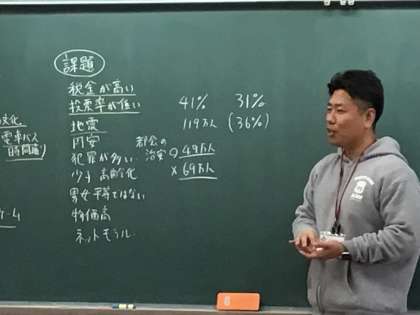 課題
税金が高い
投票率が低い
地震
円安
犯罪が多い
少子高齢化
男女平等ではない
物価高
ネットモラル
41% 31%
119万人 (36%)
都会の
治安
49万人
× 69万人
文化
電車バス
時間通り
ゲーム
8